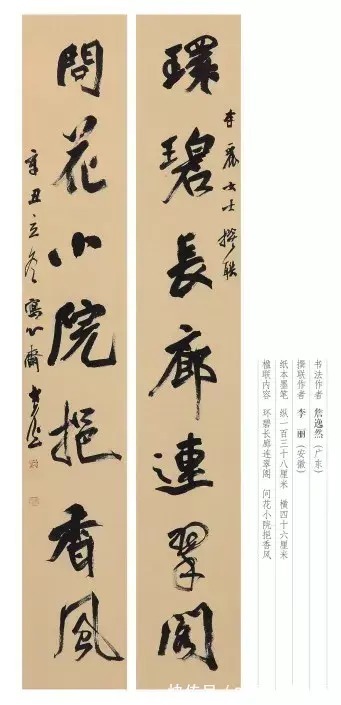 環碧長廊連翠閣
李麗女士撰联
問花小院挹香風
辛丑立冬寫心齋
书法作者 詹逸然(广东)
撰联作者 李 丽(安徽)
纸本墨笔 纵一百三十八厘米 横四十六厘米
楹联内容 环碧长廊连翠阁 问花小院挹香风